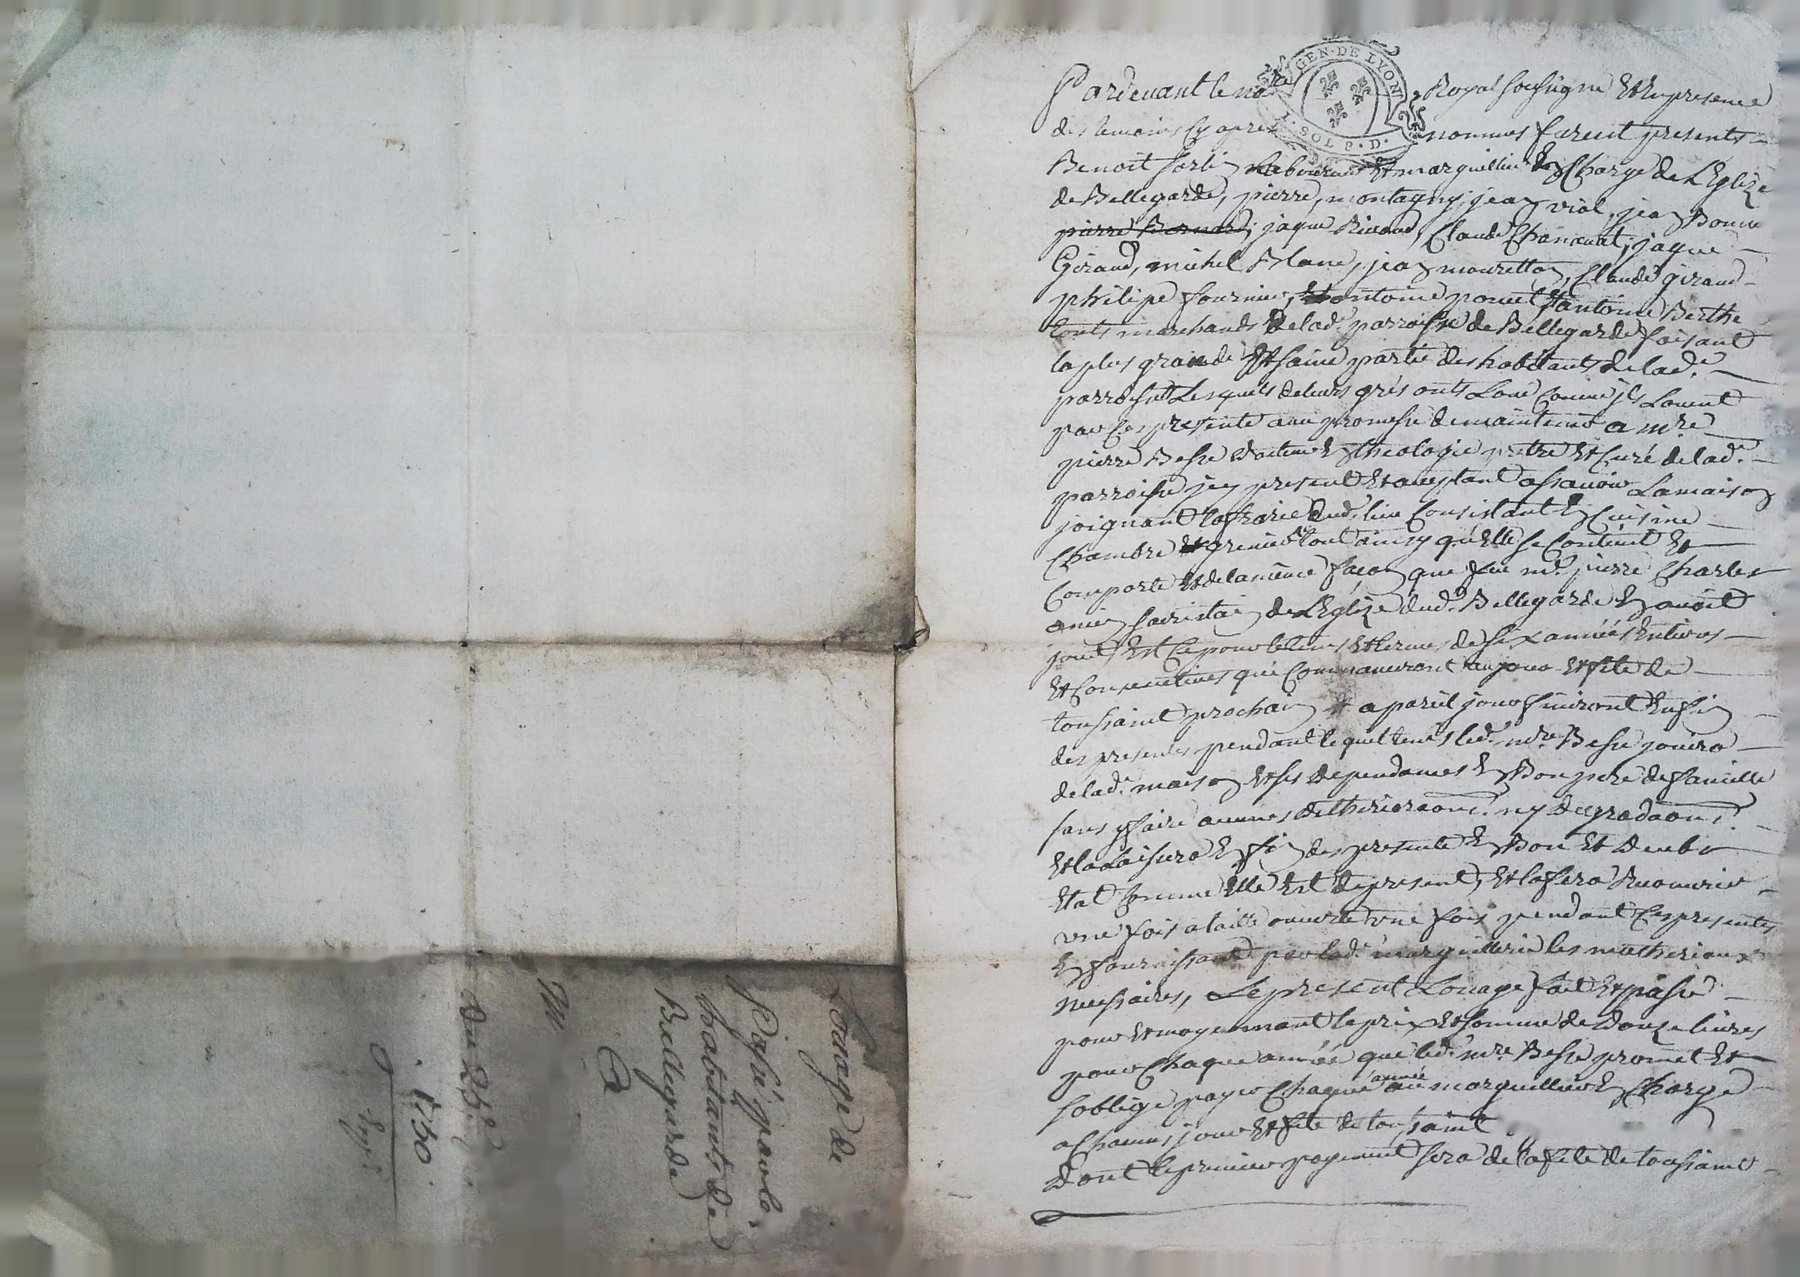 GEN. DE LYON
1. SOL 8. D.
Pardevant le no.re Royal soussigné Et En presence
des temoins cy apres nommes furent presents
Benoit Laboureur Et marguillier En Charge de L'Eglize
de Bellegarde, pierre montagny, jean vial, jean Bonne
pierre Bernard, jaque Rivaud, Claude Chancuat, jaque
Girand, michel Blanc, jean mouretton, Claude girand
philipe fournier, Et antoine poncet Et antoine Berthe
touts marchands de lad.e parroisse de Bellegarde faisant
la plus grande Et saine partie des habitants de lad.e
parroisse Lesquels de leurs grés onts Loué Comme jls Louent
par Ces presente avec promesse de maintenir a m.re
pierre Besse docteur En theologie pretre Et Curé de lad.e
parroisse jcy present Et aceptant assavoir La maison
joignant dud. lieu Consistant En Cuisine
Chambre Et grenier tout ainsy qu'Elle se Contient Et
Comporte Et de la même façon que feu m.e pierre Charles
sacristain de L'Eglize dud. Bellegarde En avoit
jouit, Est Ce pour le tems Et terme de six années Entieres
Et Consecutives qui Commanceront au jour Et fête de
toussaint prochain Et a pareil jour finiront Enfin
des presentes pendant lequel tems led. m.re Besse jouira
de lad. maison Et ses dependances En Bon pere de famille
sans y faire aucunes detherioraons. ny degradaons.
Et la Laissera En fin des presente En Bon Et Deub
Etat Comme Elle Est de present, Et la fera Recouvrir
une fois a taille ouverte une fois pendant Ces presentes
En fournissant par lad.e marguillerie les matheriaux
necessaires, Le present Louage fait Et passé
pour Et moyennant le prix Et somme de Douze livres
pour Chaque année que led. m.re Besse promet Et
s'oblige payer Chaque année au marguillier En Charge
a Chacun jour Et fête de toussaint
Dont le premier payement sera de la fête de toussaint
Louage de
Passé par les
habitants de
Bellegarde
A
M
Du 25.e
1730
Exp.é